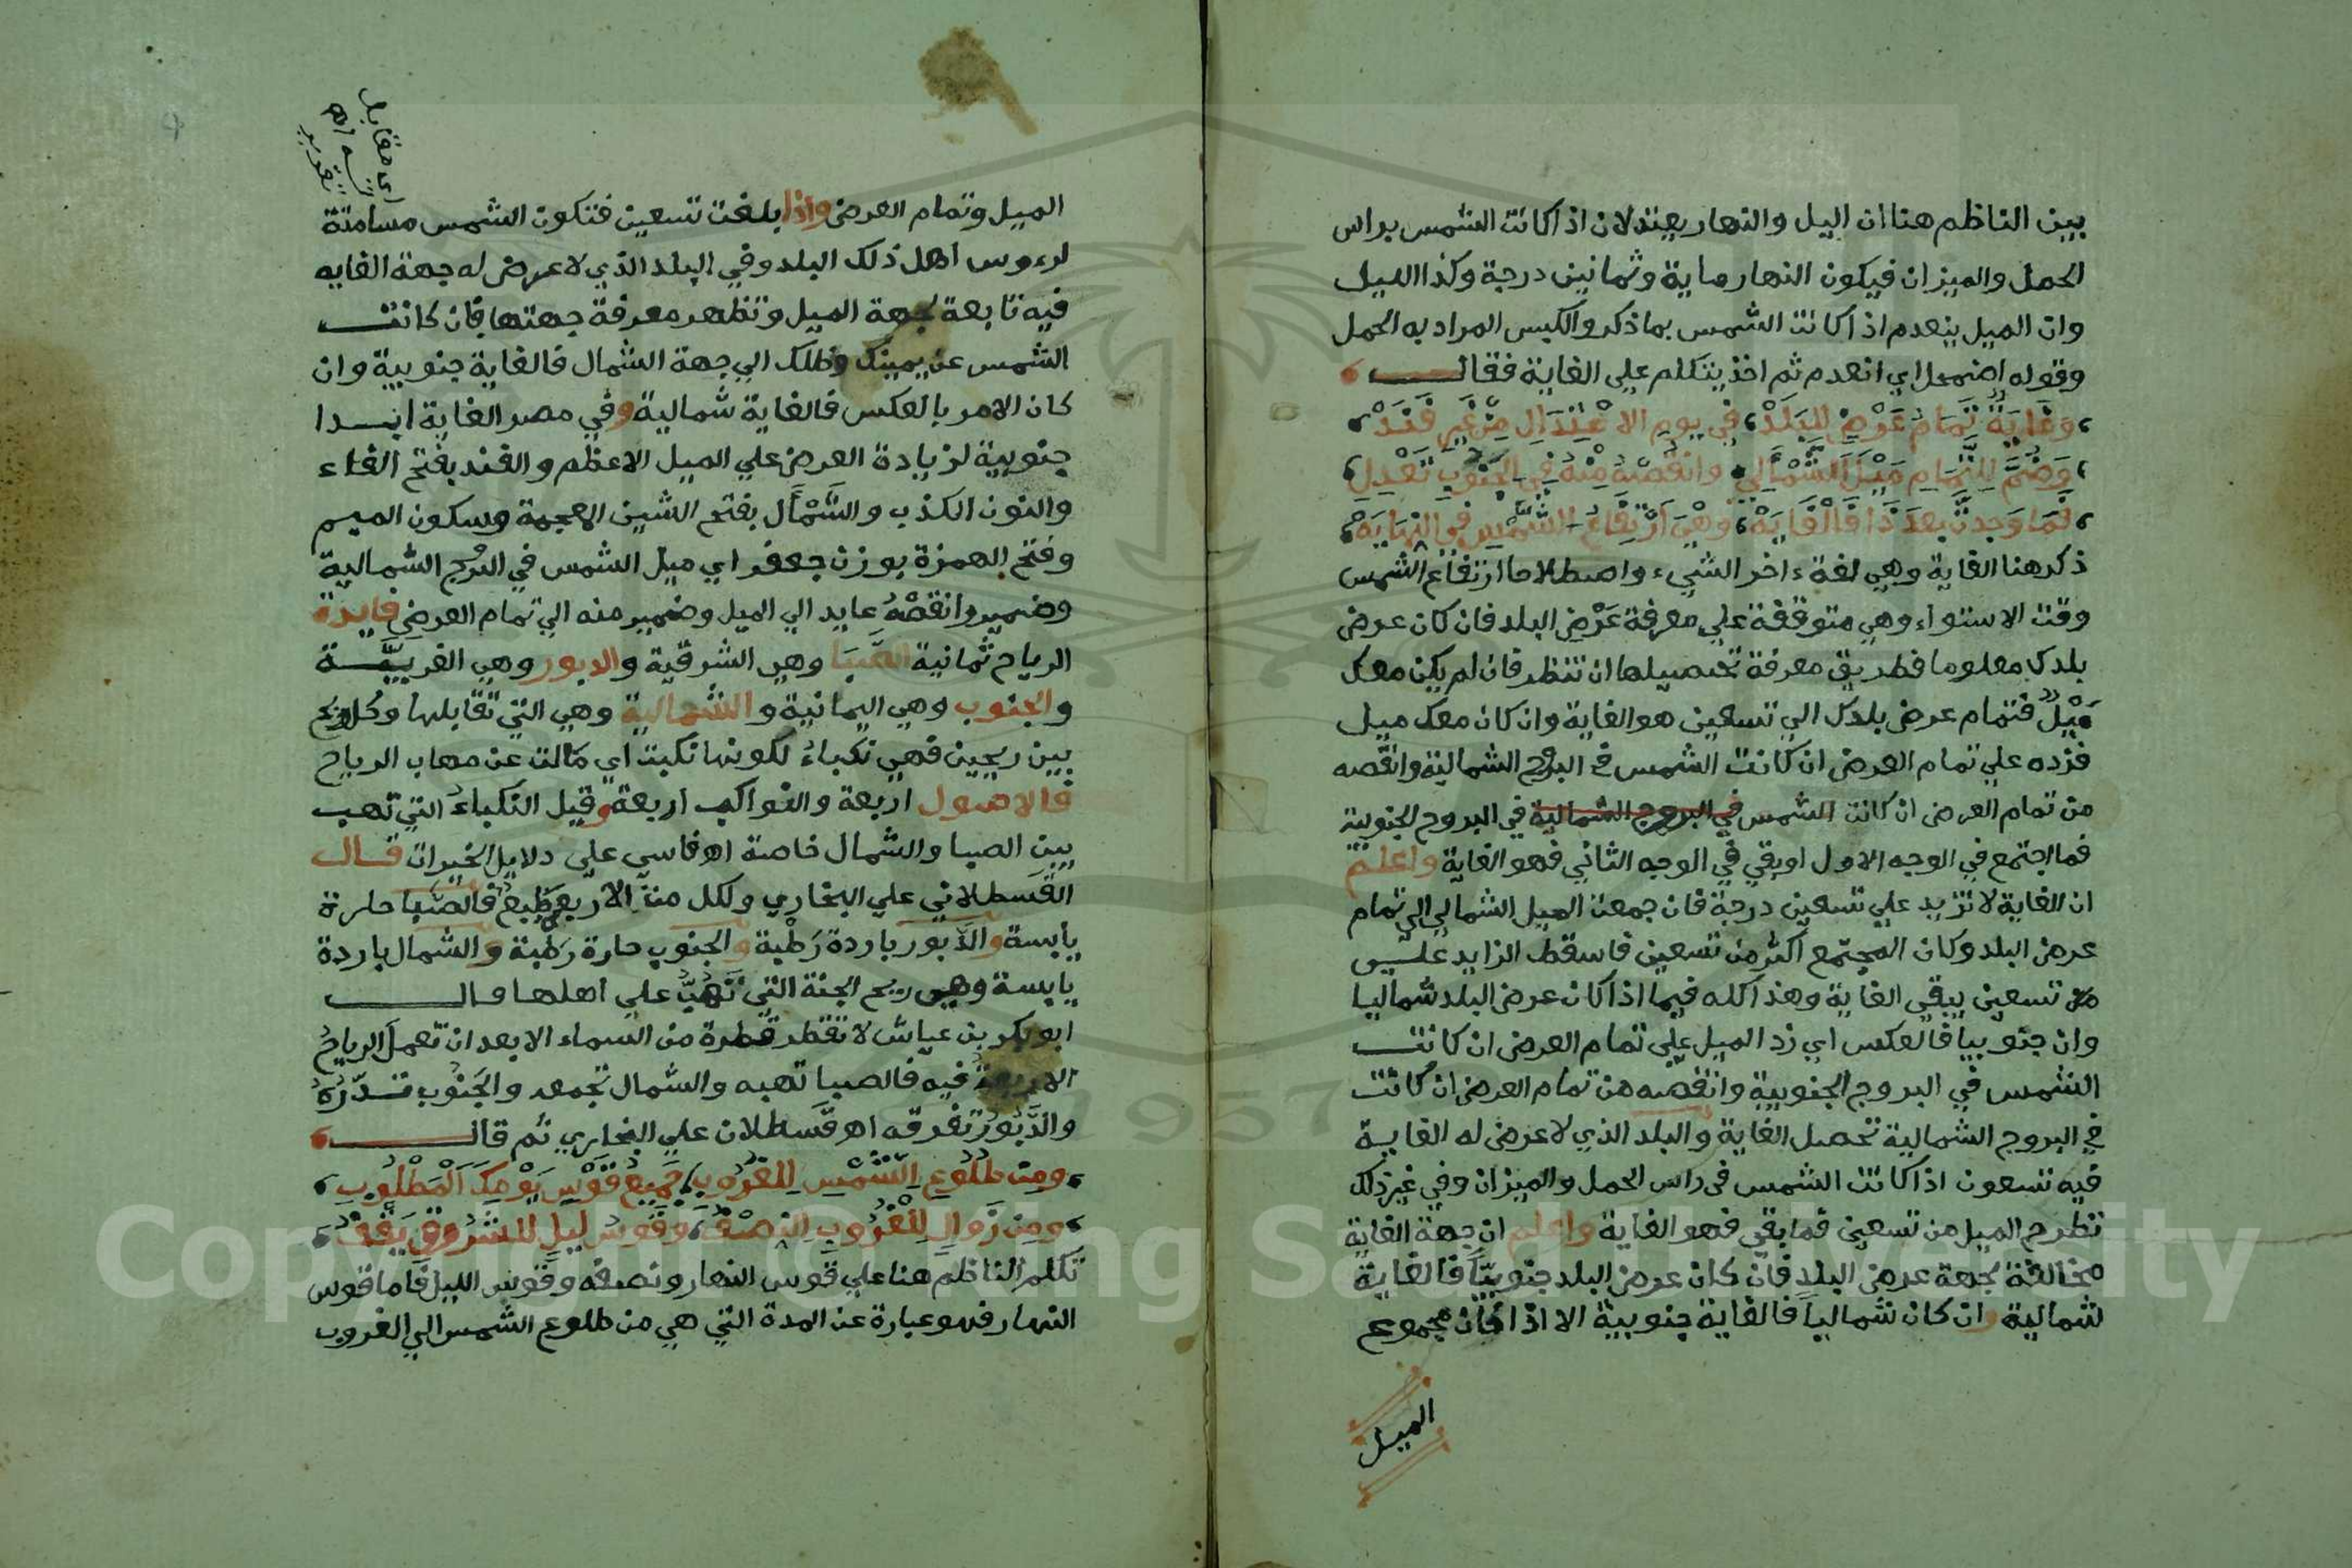 بين الناظم هنا ان اليل والنهار يعتدلان اذا كانت الشمس براس
الحمل والميزان فيكون النهار ماية وثمانين درجة وكذا الليل
وان الميل ينعدم اذا كانت الشمس بما ذكر والكبس المراد به الحمل
وقوله اضمحل اي انعدم ثم اخذ يتكلم علي الغاية فقال
وَغَايَةٌ تَمَامُ عَرْضٍ لِلبَلَدْ، في يوم الاعْتِدَالِ مِنْ غَيرِ فَنَدْ
وَضُمَّ لِلتَّمَامِ مَيْلَ الشَّمْأَلِ وانْقُصْهُ مِنْهُ في الجَنُوبِ تَعْدِلِ
فَمَا وَجدتَّ بعدَ ذَا فَالْغَايَهْ، وَهْيَ ارْتِفَاعُ الشَّمْسِ في النِّهَايَهْ
ذكر هنا الغاية وهي لغة ءاخر الشيء واصطلاحا ارتفاع الشمس
وقت الاستواء وهي متوقفة علي معرفة عَرْض البلد فان كان عرض
بلدك معلوما فطريق معرفة تحصيلها ان تنظر فان لم يكن معك
مَيْلٌ فتمام عرض بلدك الي تسعين هو الغاية وان كان معك ميل
فزده علي تمام العرض ان كانت الشمس في البروج الشمالية وانقصه
من تمام العرض ان كانت الشمس في البروج الشمالية في البروج الجنوبية
فما اجتمع في الوجه الاول او بقي في الوجه الثاني فهو الغاية واعلم
ان الغاية لا تزيد علي تسعين درجة فان جمعت الميل الشمالي الي تمام
عرض البلد وكان المجتمع اكثر من تسعين فاسقط الزايد علي
تسعين يبقي الغاية وهذا كله فيما اذا كان عرض البلد شماليا
وان جنوبيا فالعكس اي زد الميل علي تمام العرض ان كانت
الشمس في البروج الجنوبية وانقصه من تمام العرض ان كانت
في البروج الشمالية تحصل الغاية والبلد الذي لا عرض له الغاية
فيه تسعون اذا كانت الشمس في راس الحمل والميزان وفي غير ذلك
تطرح الميل من تسعين فما بقي فهو الغاية واعلم ان جهة الغاية
مخالفة لجهة عرض البلد فان كان عرض البلد جنوبيّاً فالغاية
شمالية وان كان شمالياً فالغاية جنوبية الا اذا كان مجموع
الميل
اي مقابل
الميل وتمام العرض واذا بلغت تسعين فتكون الشمس مسامتة
لرءوس اهل ذلك البلد وفي البلد الذي لا عرض له جهة الغايه
فيه تابعة لجهة الميل وتظهر معرفة جهتها فان كانت
الشمس عن يمينك وظلك الي جهة الشمال فالغاية جنوبية وان
كان الامر بالعكس فالغاية شمالية وفي مصر الغاية ابدا
جنوبية لزيادة العرض علي الميل الاعظم والفند بفتح الفاء
والنون الكذب والشَّمْأَل بفتح الشين المعجمة وسكون الميم
وفتح الهمزة بوزن جعفر اي ميل الشمس في البرج الشمالية
وضمير وانقصْهُ عايد الي الميل وضمير منه الي تمام العرض فايدة
الرياح ثمانية الصَّبَا وهي الشرقية والدبور وهي الغربيَّة
والجنوب وهي اليمانية والشمالية وهي التي تقابلها وكل ريح
بين ريحين فهي نكباءُ لكونها نكبت اي مالت عن مهاب الرياح
فالاصول اربعة والنواكب اربعة وقيل النكباءُ التي تهب
بين الصبا والشمال خاصة اهـ فاسي علي دلايل الخيرات قال
القسطلاني علي البخاري ولكل من الاربعة طبع فالصبا حارة
يابسة والدَّبور باردة رَطْبة والجنوب حارة رَطبة والشمال باردة
يابسة وهي ريح الجنة التي تَهُبُّ علي اهلها قال
ابو بكر بن عياش لا تقطر قطرة من السماء الا بعد ان تعملَ الرياحُ
الاربعةُ فيه فالصبا تهبه والشمال تجمعه والجَنُوب تدّرُهُ
والدَّبُورُ تفرقه اهـ قَسطلان علي البخاري ثم قال
ومِن طُلُوعِ الشَّمْسِ لِلْغُرُوبِ، جَمِيعُ قَوْسِ يَوْمِكَ الْمَطْلُوبِ
ومِن زَوالٍ لِلْغُرُوبِ النِصْفُ، وَقَوسُ لَيلٍ لِلشُرُوقِ يَقْفُ
تكلم الناظم هنا علي قوس النهار ونصفه وقوس الليل فاما قوس
النهار فهو عبارة عن المدة التي هي من طلوع الشمس الي الغروب
Copyright © King Saud University
1957